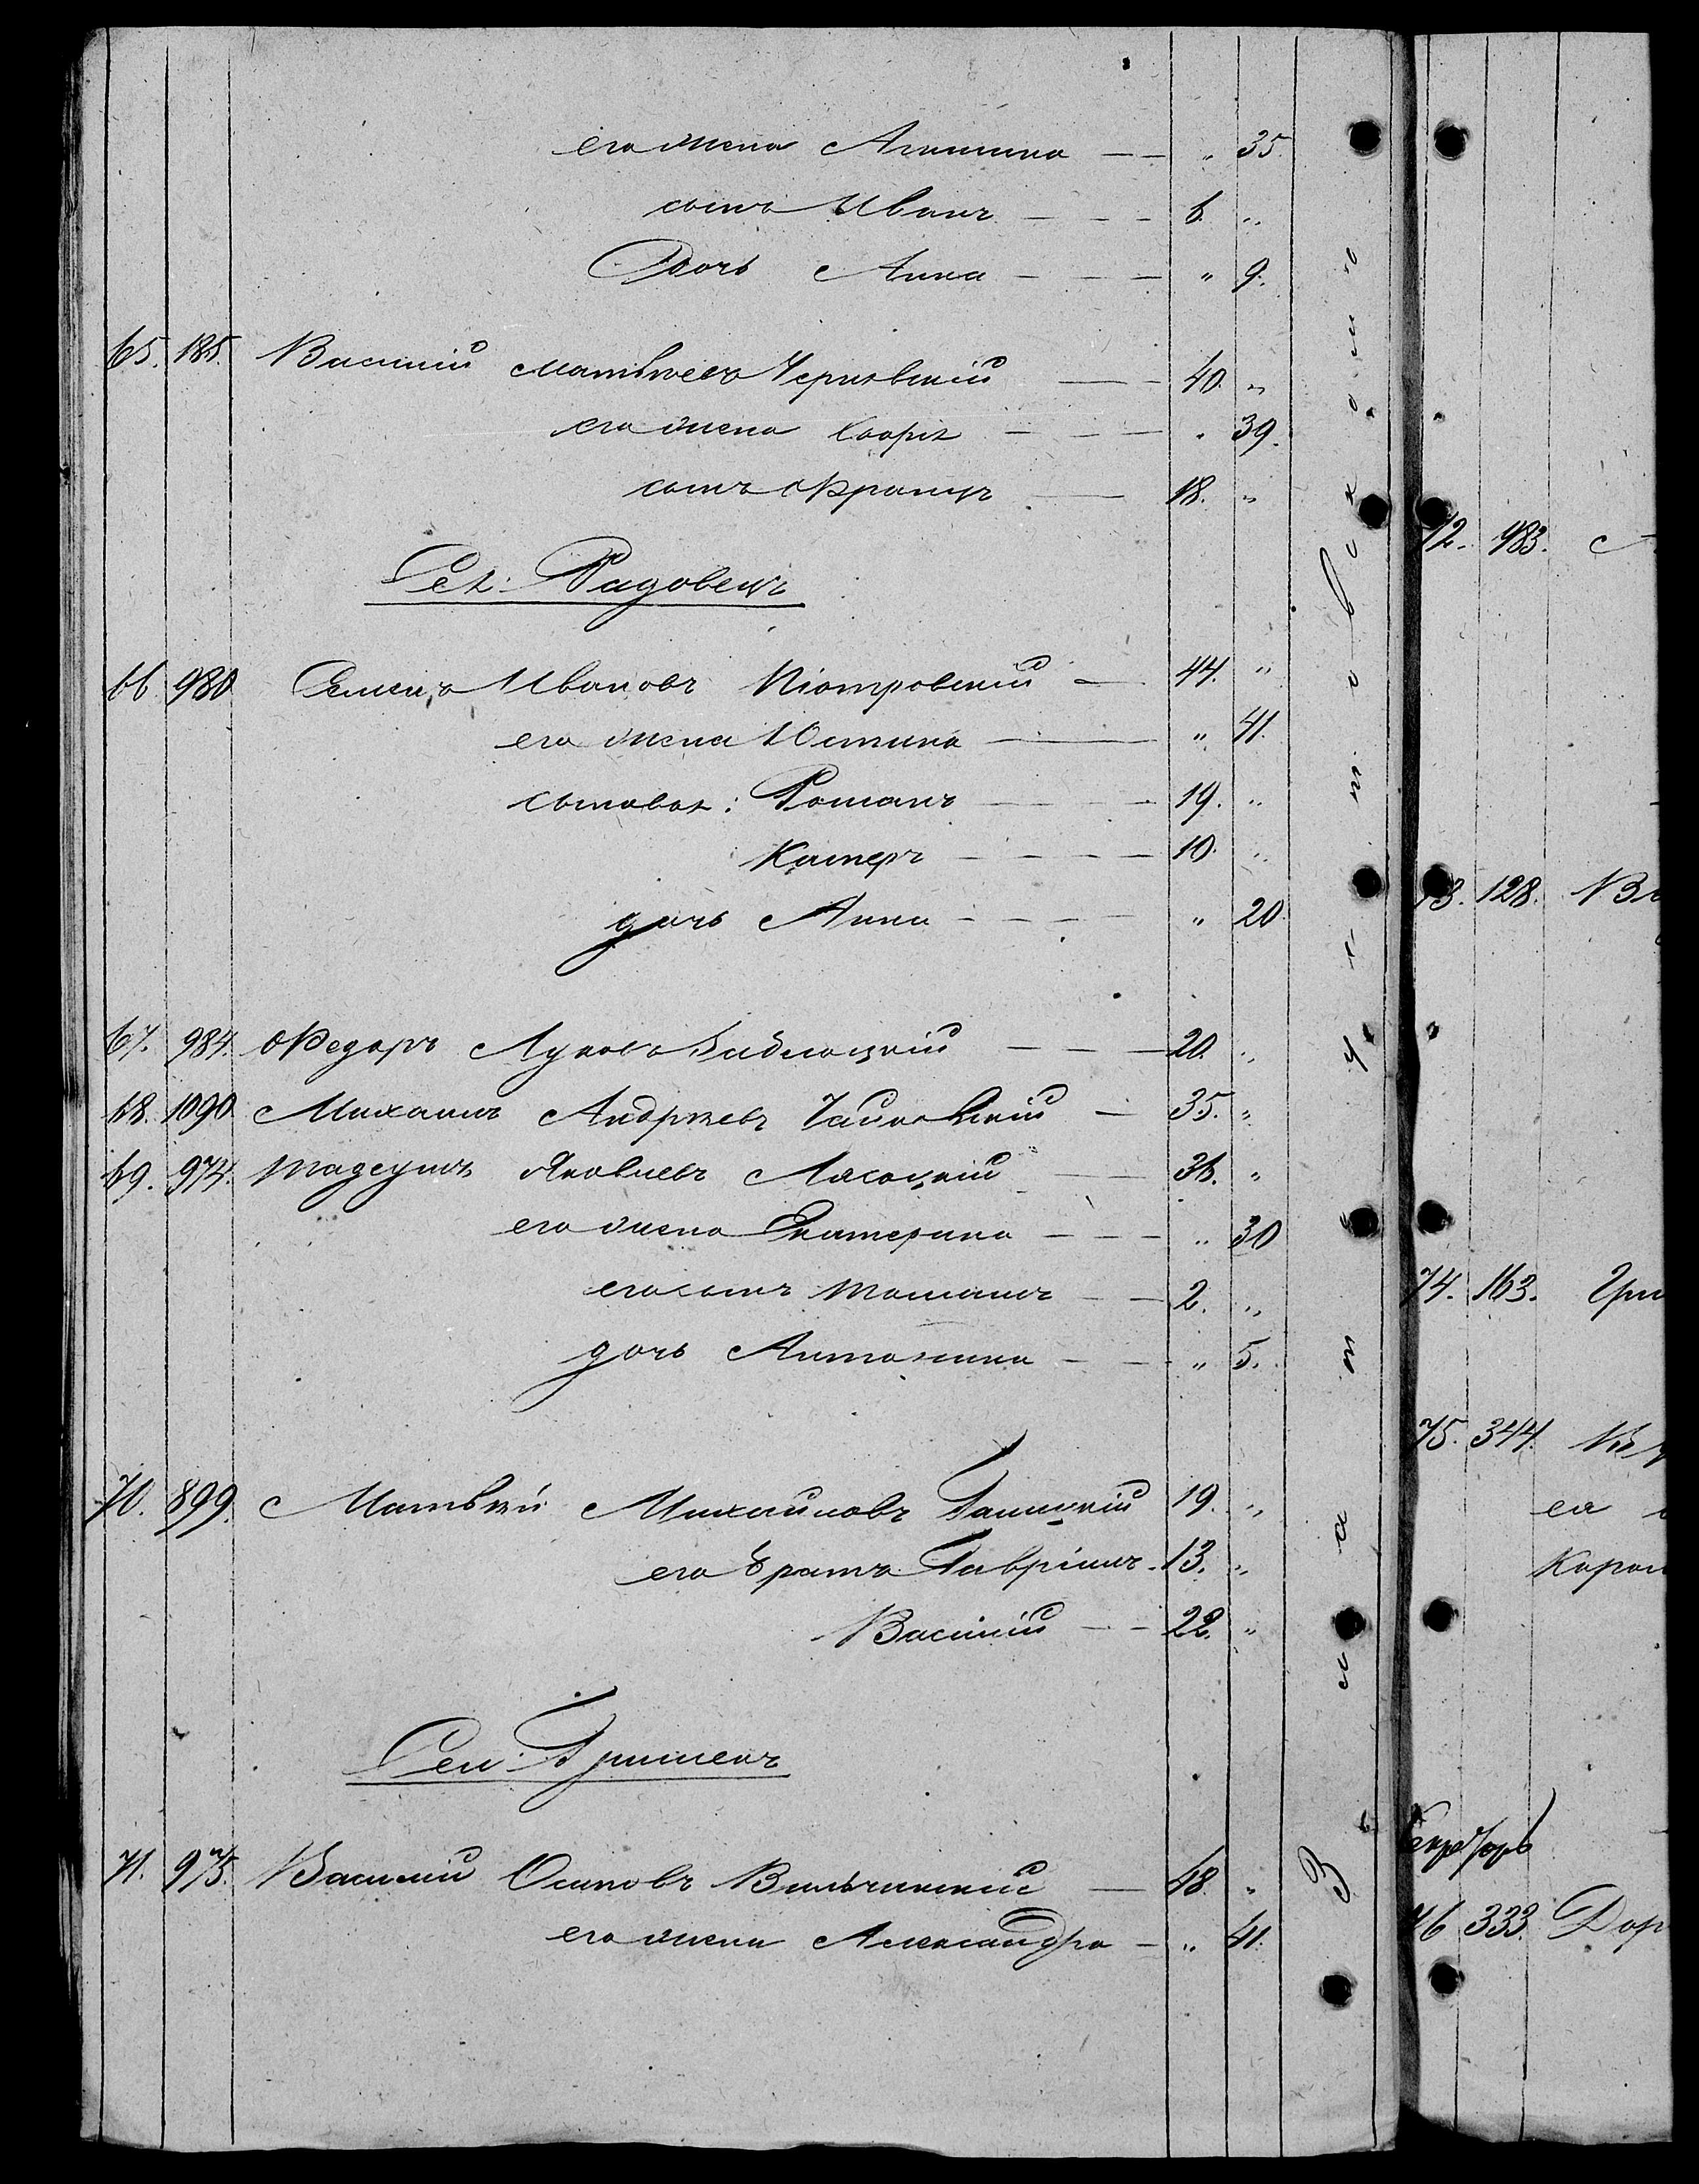 его жена Агапина — — " 35.
сынъ Иванъ — — — 6. "
Дочь Анна — — — " 9.
65. 185. Василій Матвѣевъ Черновскій — — 40. "
его жена Софія — — — " 39.
сынъ Францъ — — 18. "
Сел: Радовецъ
66. 980 Семенъ Ивановъ Піотровскій — 44. "
его жена Юстина — — " 41.
сыновья: Романъ — — — 19. "
Каспєръ — — — — 10. "
дочь Анна — — — — " 20
67. 984. Федоръ Луковъ Заблоцкій — — — 20. "
68. 1090 Михаилъ Андреевъ Чайковскій — 35. "
69. 974. Тадеушъ Яковлевъ Лясоцкій — — 36. "
его жена Екатерина — — — " 30
его сынъ Томашъ — — 2. "
дочь Антонина — — — " 5.
70. 899. Матвѣй Михайловъ Галицкій 19. "
его братъ Гавріилъ. 13. "
Василій — — 22. "
Сел: Гришекъ
71. 975. Василій Осиповъ Вильчинскій — 48. "
его жена Александра — " 41.
72. 983.
73. 128.
74. 163. Гри
75. 344.
ея
Карол
76 333. Дор